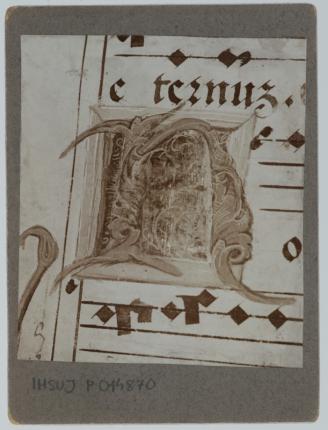 e ternuz.
o
IHSUJ P 014870